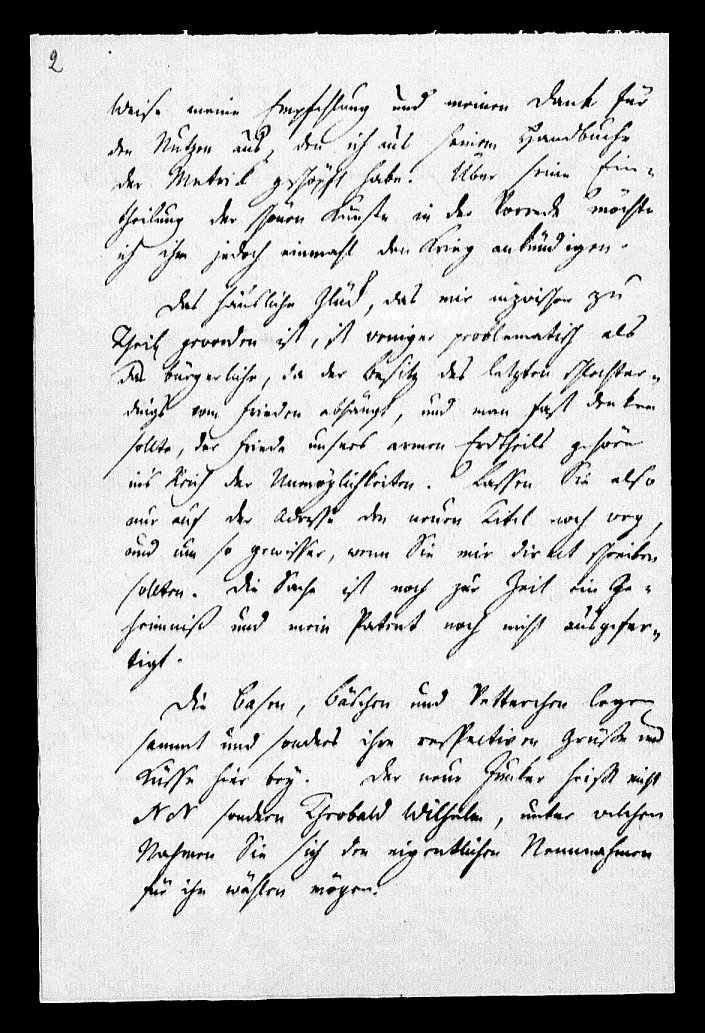 2
Weise meine Empfehlung und meinen Dank für
den Nutzen aus, den ich aus seinem Handbuche
der Metrik geschöpft habe. Über seine Ein-
theilung der schönen Künste in der Vorrede möchte
ich ihm jedoch einmahl den Krieg ankündigen.
Das häusliche Glück, das mir inzwischen zu
Theil geworden ist, ist weniger problematisch als
das bürgerliche, da der Besitz des letzten schlechter-
dings vom Frieden abhängt, und man fast denken
sollte, der Friede unsers armen Erdtheils gehöre
ins Reich der Unmöglichkeiten. Lassen Sie also
nur auf der Adresse den neuen Titel noch weg,
und um so gewisser, wenn Sie mir direct schreiben
sollten. Die Sache ist noch zur Zeit ein Ge-
heimniß und mein Patent noch nicht ausgefer-
tigt.
Die Basen, Bäschen und Vetterchen legen
sammt und sonders ihre respectiven Grüße und
Küsse hier bey. Der neue Junker heißt nicht
NN sondern Theobald Wilhelm, unter welchen
Nahmen Sie sich den eigentlichen Nennnahmen
für ihn wählen mögen.